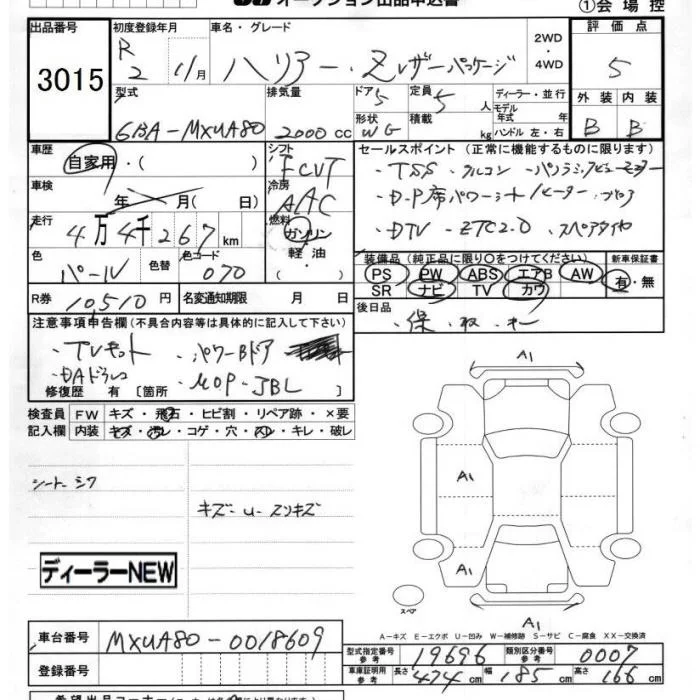 ①会場控
出品番号 初度登録年月 車名・グレード 2WD ・4WD 評価点
3015 R 2 11月 ハリアー・Zレザーパッケージ 5
型式 排気量 ドア 5 定員 5 人 ディーラー・並行 外装 内装
6BA-MXUA80 2000 cc 形状 WG 積載 kg モデル年式 年式 ハンドル 左・右 B B
車歴 自家用・( ) シフト FCVT セールスポイント (正常に機能するものに限ります)
・TSS ・クルコン
車検 年 月( 日) 冷房 AAC ・D-P席パワーシート/ヒーター
走行 4万4千267km 燃料 ガソリン ・DTV ・ETC2.0 ・スペアタイヤ
色 パール 色替 色コード 070 軽油 ・( )
装備品 (純正品に限り○をつけてください) 新車保証書
PS PW ABS エアB AW 有・無
SR ナビ TV カワ
R券 10,510円 名変通知期限 月 日 後日品
・保・取・キー
注意事項申告欄 (不具合内容等は具体的に記入して下さい)
・TVキット ・パワーBドア
・DAドラレコ
修復歴 有 [箇所 ・MOP-JBL ]
検査員 FW キズ・飛石・ヒビ割・リペア跡・×要
記入欄 内装 キズ・汚レ・コゲ・穴・スレ・キレ・破レ
A1
シート シワ
A1
キズ-U-スリキズ
ディーラーNEW
A1
スペア
A1
A-キズ E-エクボ U-凹み W-補修跡 S-サビ C-腐食 XX-交換済
車台番号 MXUA80-0018609 型式指定番号 参考 19696 類別区分番号 参考 0007
登録番号 車庫証明用 参考 長さ 474cm 幅 185cm 高さ 166cm